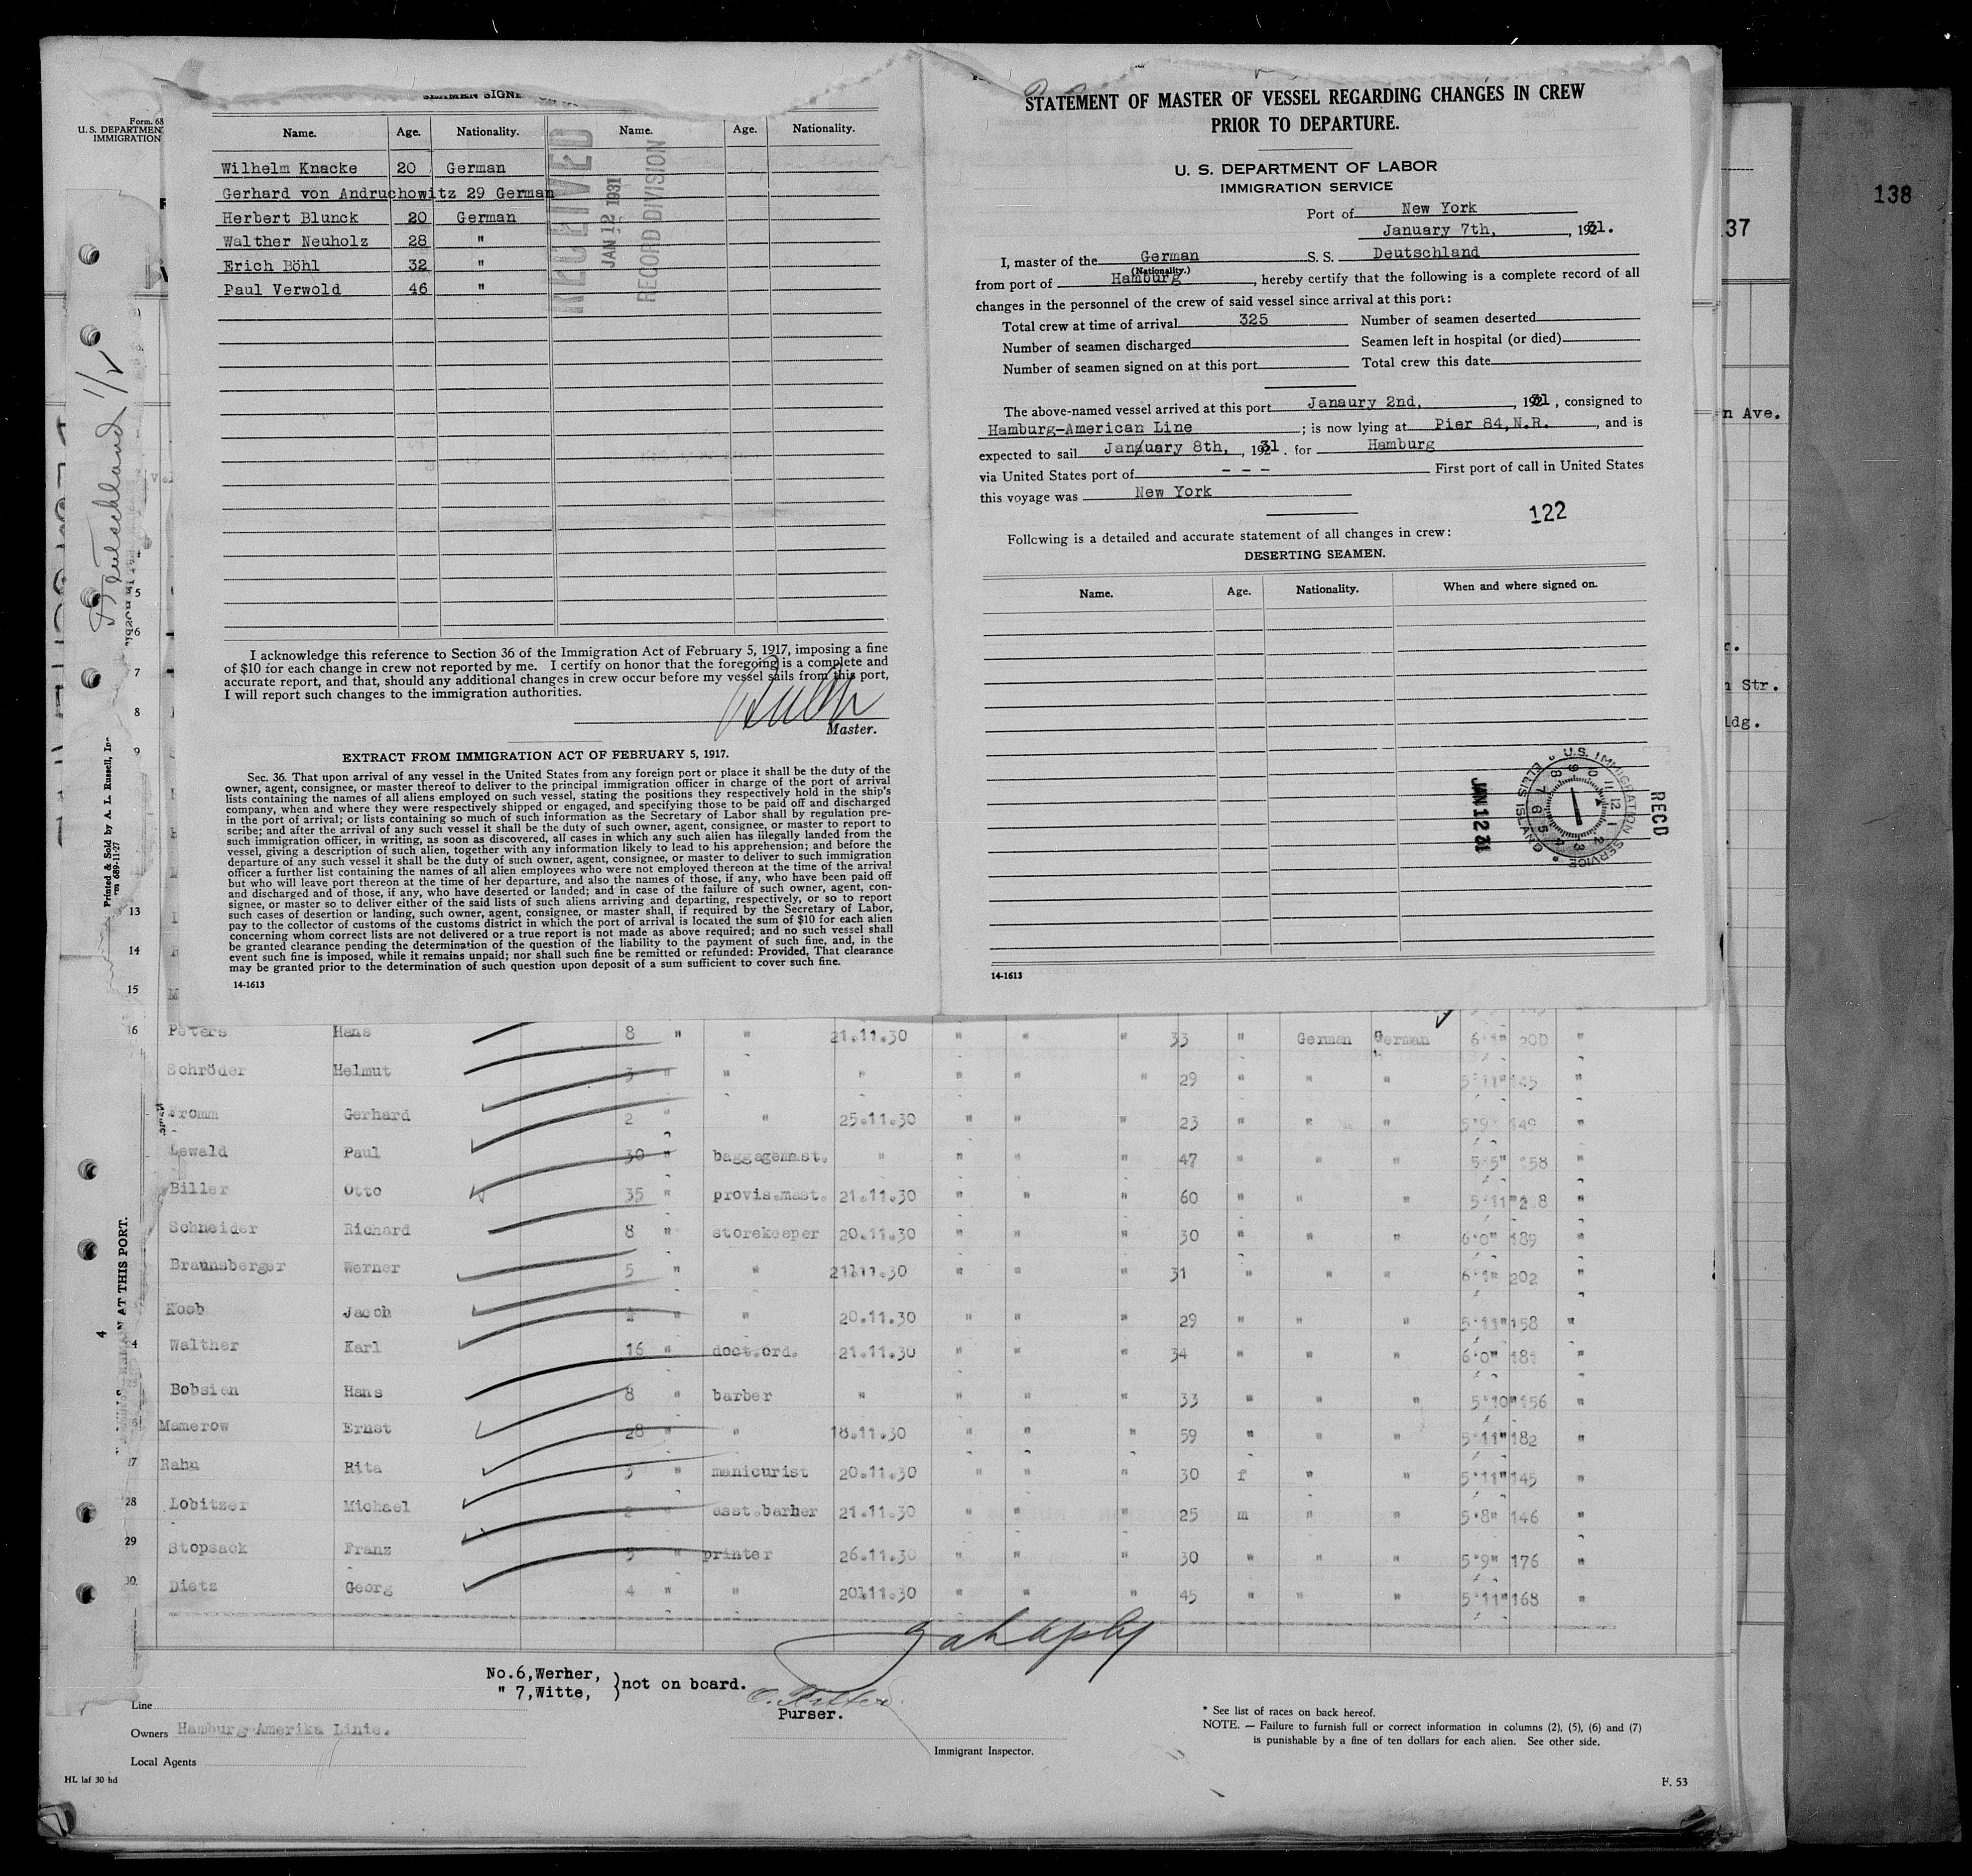 SEAMEN SIGNE
Name. Age. Nationality. Name. Age. Nationality.
Wilhelm Knacke 20 German
Gerhard von Andruchowitz 29 German
Herbert Blunck 20 German
Walther Neuholz 28 "
Erich Böhl 32 "
Paul Verwold 46 "
RECEIVED
JAN 12 1931
RECORD DIVISION
I acknowledge this reference to Section 36 of the Immigration Act of February 5, 1917, imposing a fine
of $10 for each change in crew not reported by me. I certify on honor that the foregoing is a complete and
accurate report, and that, should any additional changes in crew occur before my vessel sails from this port,
I will report such changes to the immigration authorities.
Master.
EXTRACT FROM IMMIGRATION ACT OF FEBRUARY 5, 1917.
Sec. 36. That upon arrival of any vessel in the United States from any foreign port or place it shall be the duty of the
owner, agent, consignee, or master thereof to deliver to the principal immigration officer in charge of the port of arrival
lists containing the names of all aliens employed on such vessel, stating the positions they respectively hold in the ship's
company, when and where they were respectively shipped or engaged, and specifying those to be paid off and discharged
in the port of arrival; or lists containing so much of such information as the Secretary of Labor shall by regulation pre-
scribe; and after the arrival of any such vessel it shall be the duty of such owner, agent, consignee, or master to report to
such immigration officer, in writing, as soon as discovered, all cases in which any such alien has illegally landed from the
vessel, giving a description of such alien, together with any information likely to lead to his apprehension; and before the
departure of any such vessel it shall be the duty of such owner, agent, consignee, or master to deliver to such immigration
officer a further list containing the names of all alien employees who were not employed thereon at the time of the arrival
but who will leave port thereon at the time of her departure, and also the names of those, if any, who have been paid off
and discharged and of those, if any, who have deserted or landed; and in case of the failure of such owner, agent, con-
signee, or master so to deliver either of the said lists of such aliens arriving and departing, respectively, or so to report
such cases of desertion or landing, such owner, agent, consignee, or master shall, if required by the Secretary of Labor,
pay to the collector of customs of the customs district in which the port of arrival is located the sum of $10 for each alien
concerning whom correct lists are not delivered or a true report is not made as above required; and no such vessel shall
be granted clearance pending the determination of the question of the liability to the payment of such fine, and, in the
event such fine is imposed, while it remains unpaid; nor shall such fine be remitted or refunded: Provided, That clearance
may be granted prior to the determination of such question upon deposit of a sum sufficient to cover such fine.
14-1613
STATEMENT OF MASTER OF VESSEL REGARDING CHANGES IN CREW
PRIOR TO DEPARTURE.
U. S. DEPARTMENT OF LABOR
IMMIGRATION SERVICE
Port of New York
January 7th, , 1931.
I, master of the German S. S. Deutschland
(Nationality.)
from port of Hamburg , hereby certify that the following is a complete record of all
changes in the personnel of the crew of said vessel since arrival at this port:
Total crew at time of arrival 325 Number of seamen deserted
Number of seamen discharged Seamen left in hospital (or died)
Number of seamen signed on at this port Total crew this date
The above-named vessel arrived at this port Janaury 2nd, , 1931 , consigned to
Hamburg-American Line ; is now lying at Pier 84,N.R. , and is
expected to sail January 8th, , 1931 . for Hamburg
via United States port of - - - First port of call in United States
this voyage was New York
122
Following is a detailed and accurate statement of all changes in crew:
DESERTING SEAMEN.
Name. Age. Nationality. When and where signed on.
JAN 12 31
U.S. IMMIGRATION SERVICE ELLIS ISLAND
RECD
14-1613
Form. 68
U. S. DEPARTMENT
IMMIGRATION
Deutschland 1/2
Printed & Sold by A. L. Russell, In
rm 689-11-27
N AT THIS PORT.
4
138
37
n Ave.
Str.
ldg.
5
6
7
8
9
13
14
15
16 Peters Hans 8 " " 21.11.30 " " " 33 " German German 6'1" 200 "
Schröder Helmut 3 " " " " " " 29 " " " 5'11" 145 "
Fromm Gerhard 2 " " 25.11.30 " " " 23 " " " 5'9" 149 "
Lewald Paul 30 " baggagemast. " " " " 47 " " " 5'5" 158 "
Biller Otto 35 " provis.mast. 21.11.30 " " " 60 " " " 5'11" 208 "
Schneider Richard 8 " storekeeper 20.11.30 " " " 30 " " " 6'0" 189 "
Braunsberger Werner 5 " " 21111.30 " " " 31 " " " 6'1" 202 "
Koob Jacob " " 20.11.30 " " " 29 " " " 5'11" 158 "
24 Walther Karl 16 " doct.ord. 21.11.30 " " " 34 " " " 6'0" 181 "
Bobsien Hans 8 " barber " " " " 33 " " " 5'10" 156 "
Mamerow Ernst 28 " " 18.11.30 " " " 59 " " " 5'11" 182 "
27 Rahn Rita 3 " manicurist 20.11.30 " " " 30 f " " 5'11" 145 "
28 Lobitzer Michael 2 " asst.barber 21.11.30 " " " 25 m " " 5'8" 146 "
29 Stopsack Franz 5 " printer 26.11.30 " " " 30 " " " 5'9" 176 "
30 Dietz Georg 4 " " 20111.30 " " " 45 " " " 5'11" 168 "
No.6,Werner,
" 7,Witte, }not on board.
Purser.
Line
Owners Hamburg-Amerika Linie.
Local Agents
Immigrant Inspector.
* See list of races on back hereof.
NOTE. — Failure to furnish full or correct information in columns (2), (5), (6) and (7)
is punishable by a fine of ten dollars for each alien. See other side.
HL laf 30 hd
F. 53